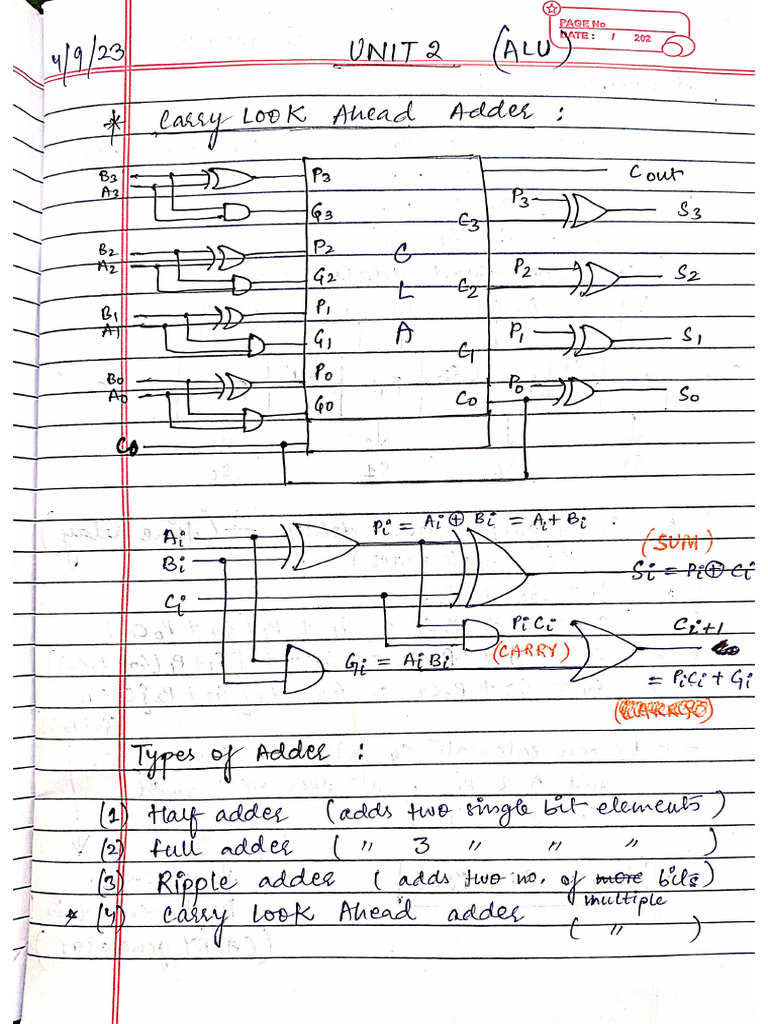 PAGE No
DATE: / 202
4/9/23 UNIT 2 (ALU)
* Carry Look Ahead Adder :
B3 P3 Cout
A3 P3
G3 C3 S3
B2 P2
A2 C P2
G2 C2 S2
B1 P1 L
A1 P1
G1 A C1 S1
B0 P0
A0 P0
G0 C0 S0
C0
Ai Pi = Ai ⊕ Bi = Ai + Bi
Bi (SUM)
Si = Pi ⊕ Ci
Ci
PiCi Ci+1
Gi = AiBi (CARRY)
= PiCi + Gi
Types of Adder :
(1) Half adder (adds two single bit elements)
(2) full adder ( " 3 " " " )
(3) Ripple adder ( adds two no. of more bits)
multiple
* (4) Carry Look Ahead adder ( " )